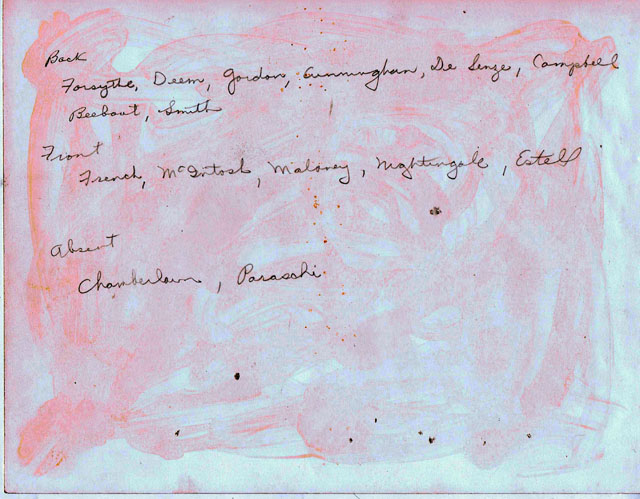 Back
Forsythe, Deem, Gordon, Cunningham, De Senze, Campbell
Beebout, Smith
Front
French, McIntosh, Maloney, Nightingale, Estell
Absent
Chamberlain, Paraschi